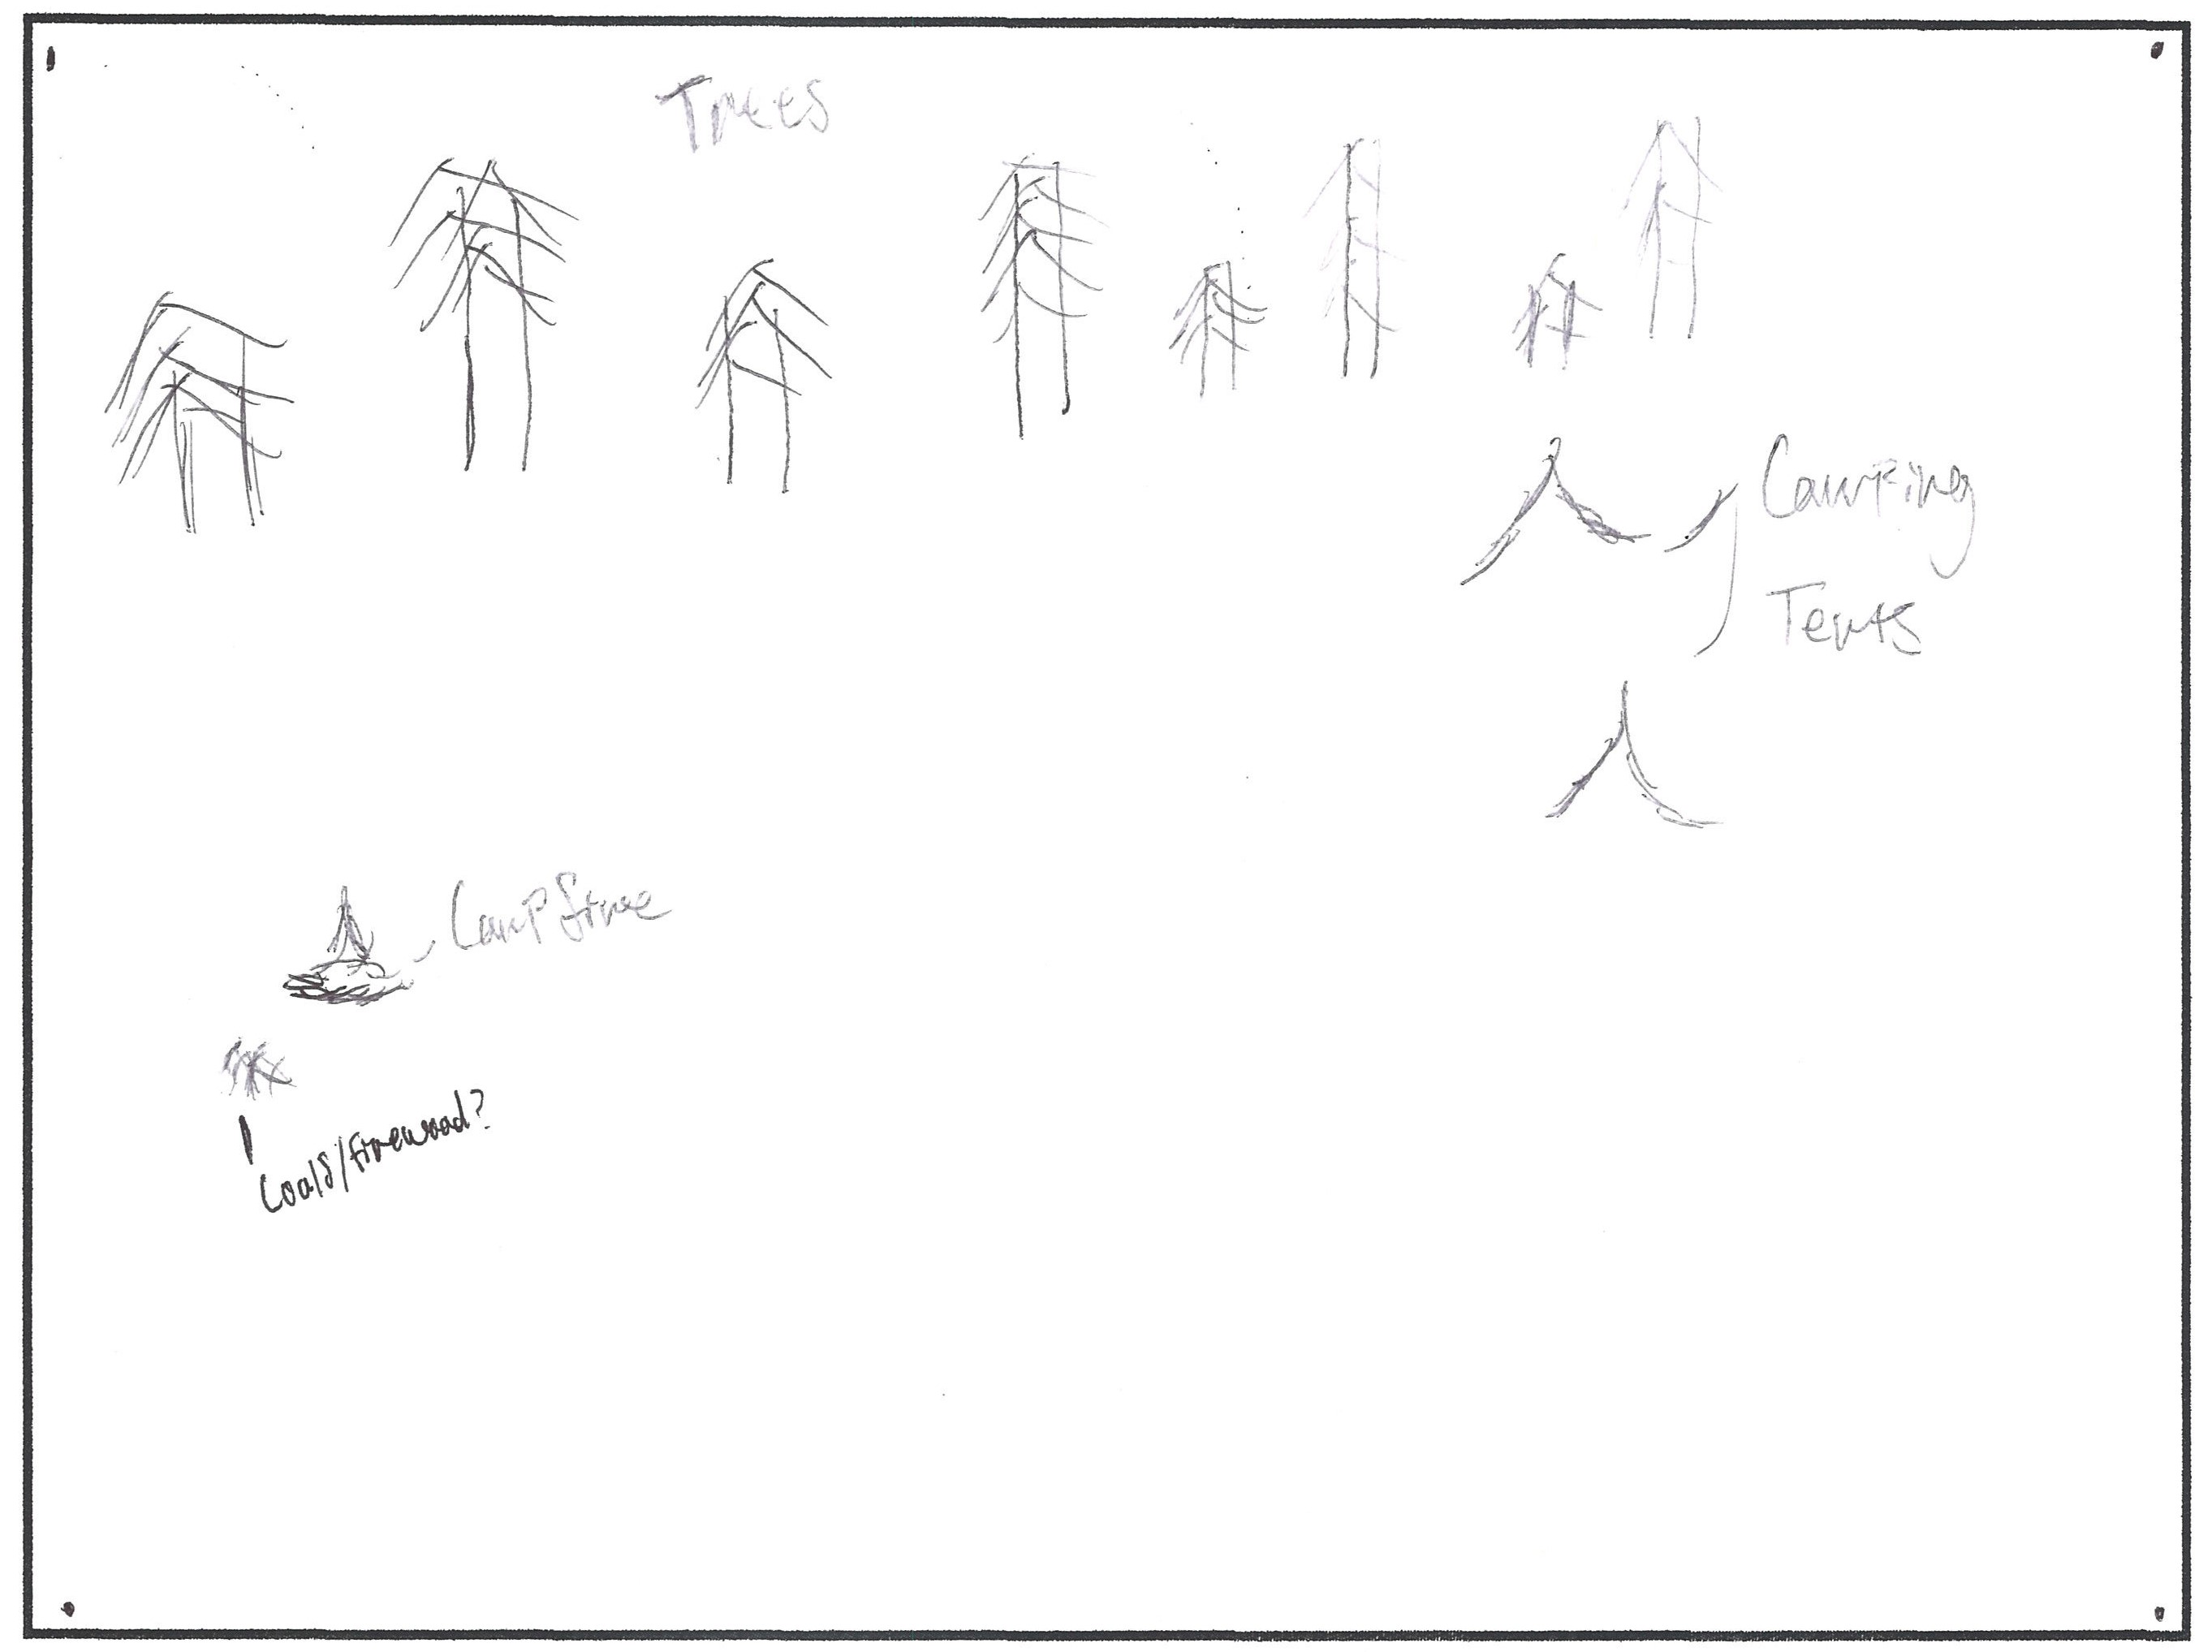 Trees
Camping
Tents
Campfire
Coals/firewood?